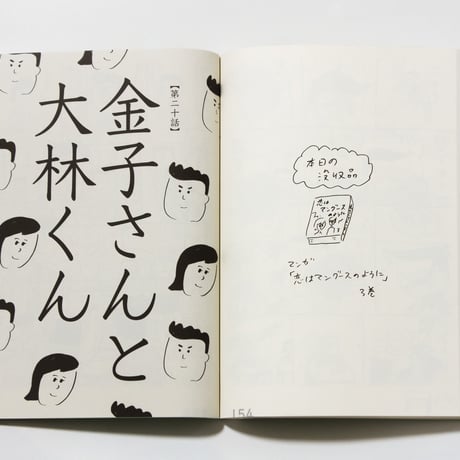 【第二十話】
金子さんと
大林くん
本日の
没収品
恋は
マングース
のように
マンガ
「恋はマングースのように」
3巻
154